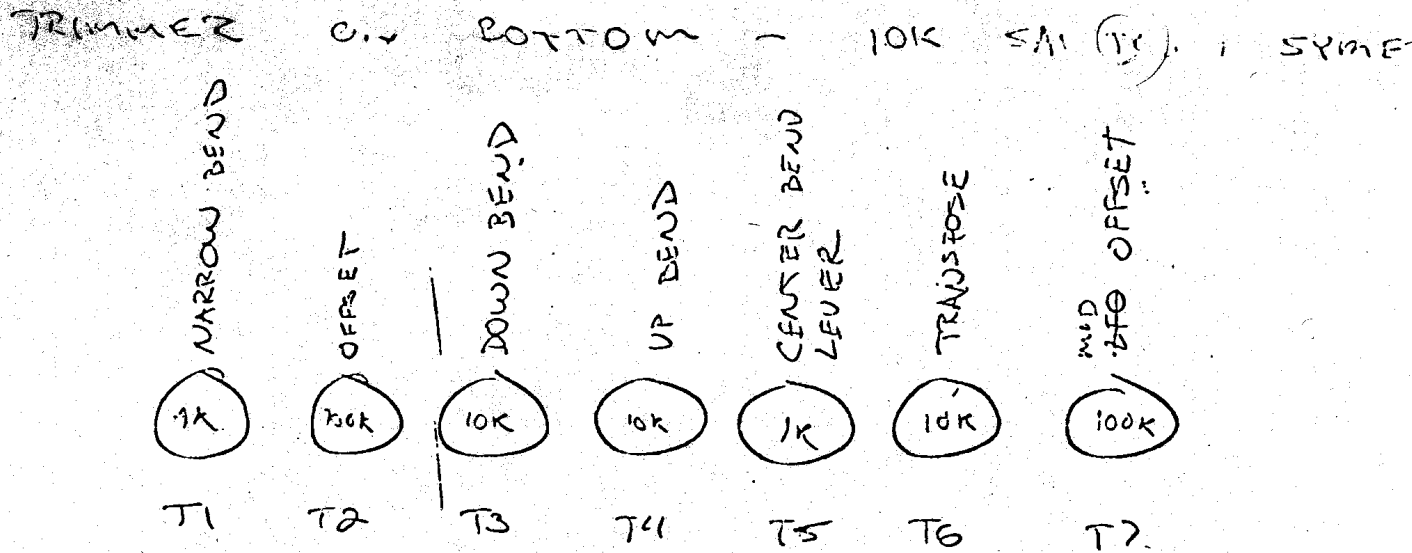 TRIMMER ON BOTTOM - 10K SYME
NARROW BEND
OFFSET
DOWN BEND
UP BEND
CENTER BEND
LEVER
TRANSPOSE
MOD LFO OFFSET
1K 10K 10K 1K 10K 100K
T1 T2 T3 T4 T5 T6 T7.